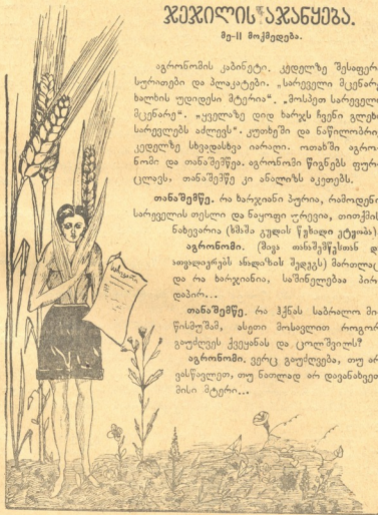 ჯეჯილის აჯანყება.
მე-II მოქმედება.
აგრონომის კაბინეტი. კედელზე შესაფერ
სურათები და პლაკატები. „სარეველი მცენარე
ხალხის უდიდესი მტერია“. „მოსპეთ სარეველ
მცენარე“. „ყველაზე დიდ ხარჯს ჩვენი გლეხი
სარეველებს აძლევს“. კუთხეში და ნაწილობრივ
კედელზე სხვადასხვა იარაღი. ოთახში აგრო
ნომი და თანაშემწეა. აგრონომი წიგნებს ფურ
ცლავს. თანაშემწე კი ანალიზს აკეთებს.
თანაშემწე. რა ხარჯიანი პურია, რამოდენი
სარეველის თესლი და ნაყოფი ურევია, თითქმის
ნახევარია
აგრონომი. (მივა თანაშემწესთან დ
ათვალიერებს ანალიზის შედეგს) მართლაც
და რა ხარჯიანია, საშინელებაა პირ
დაპირ...
თანაშემწე. რა ჰქნას საბრალო მი
წისმუშამ, ასეთი მოსავლით როგორ
გაუძღვეს ქვეყანას და ცოლშვილს?
აგრონომი. ვერც გაუძღვება, თუ არ
ვასწავლეთ, თუ ნათლად არ დავანახვეთ
მისი მტერი...